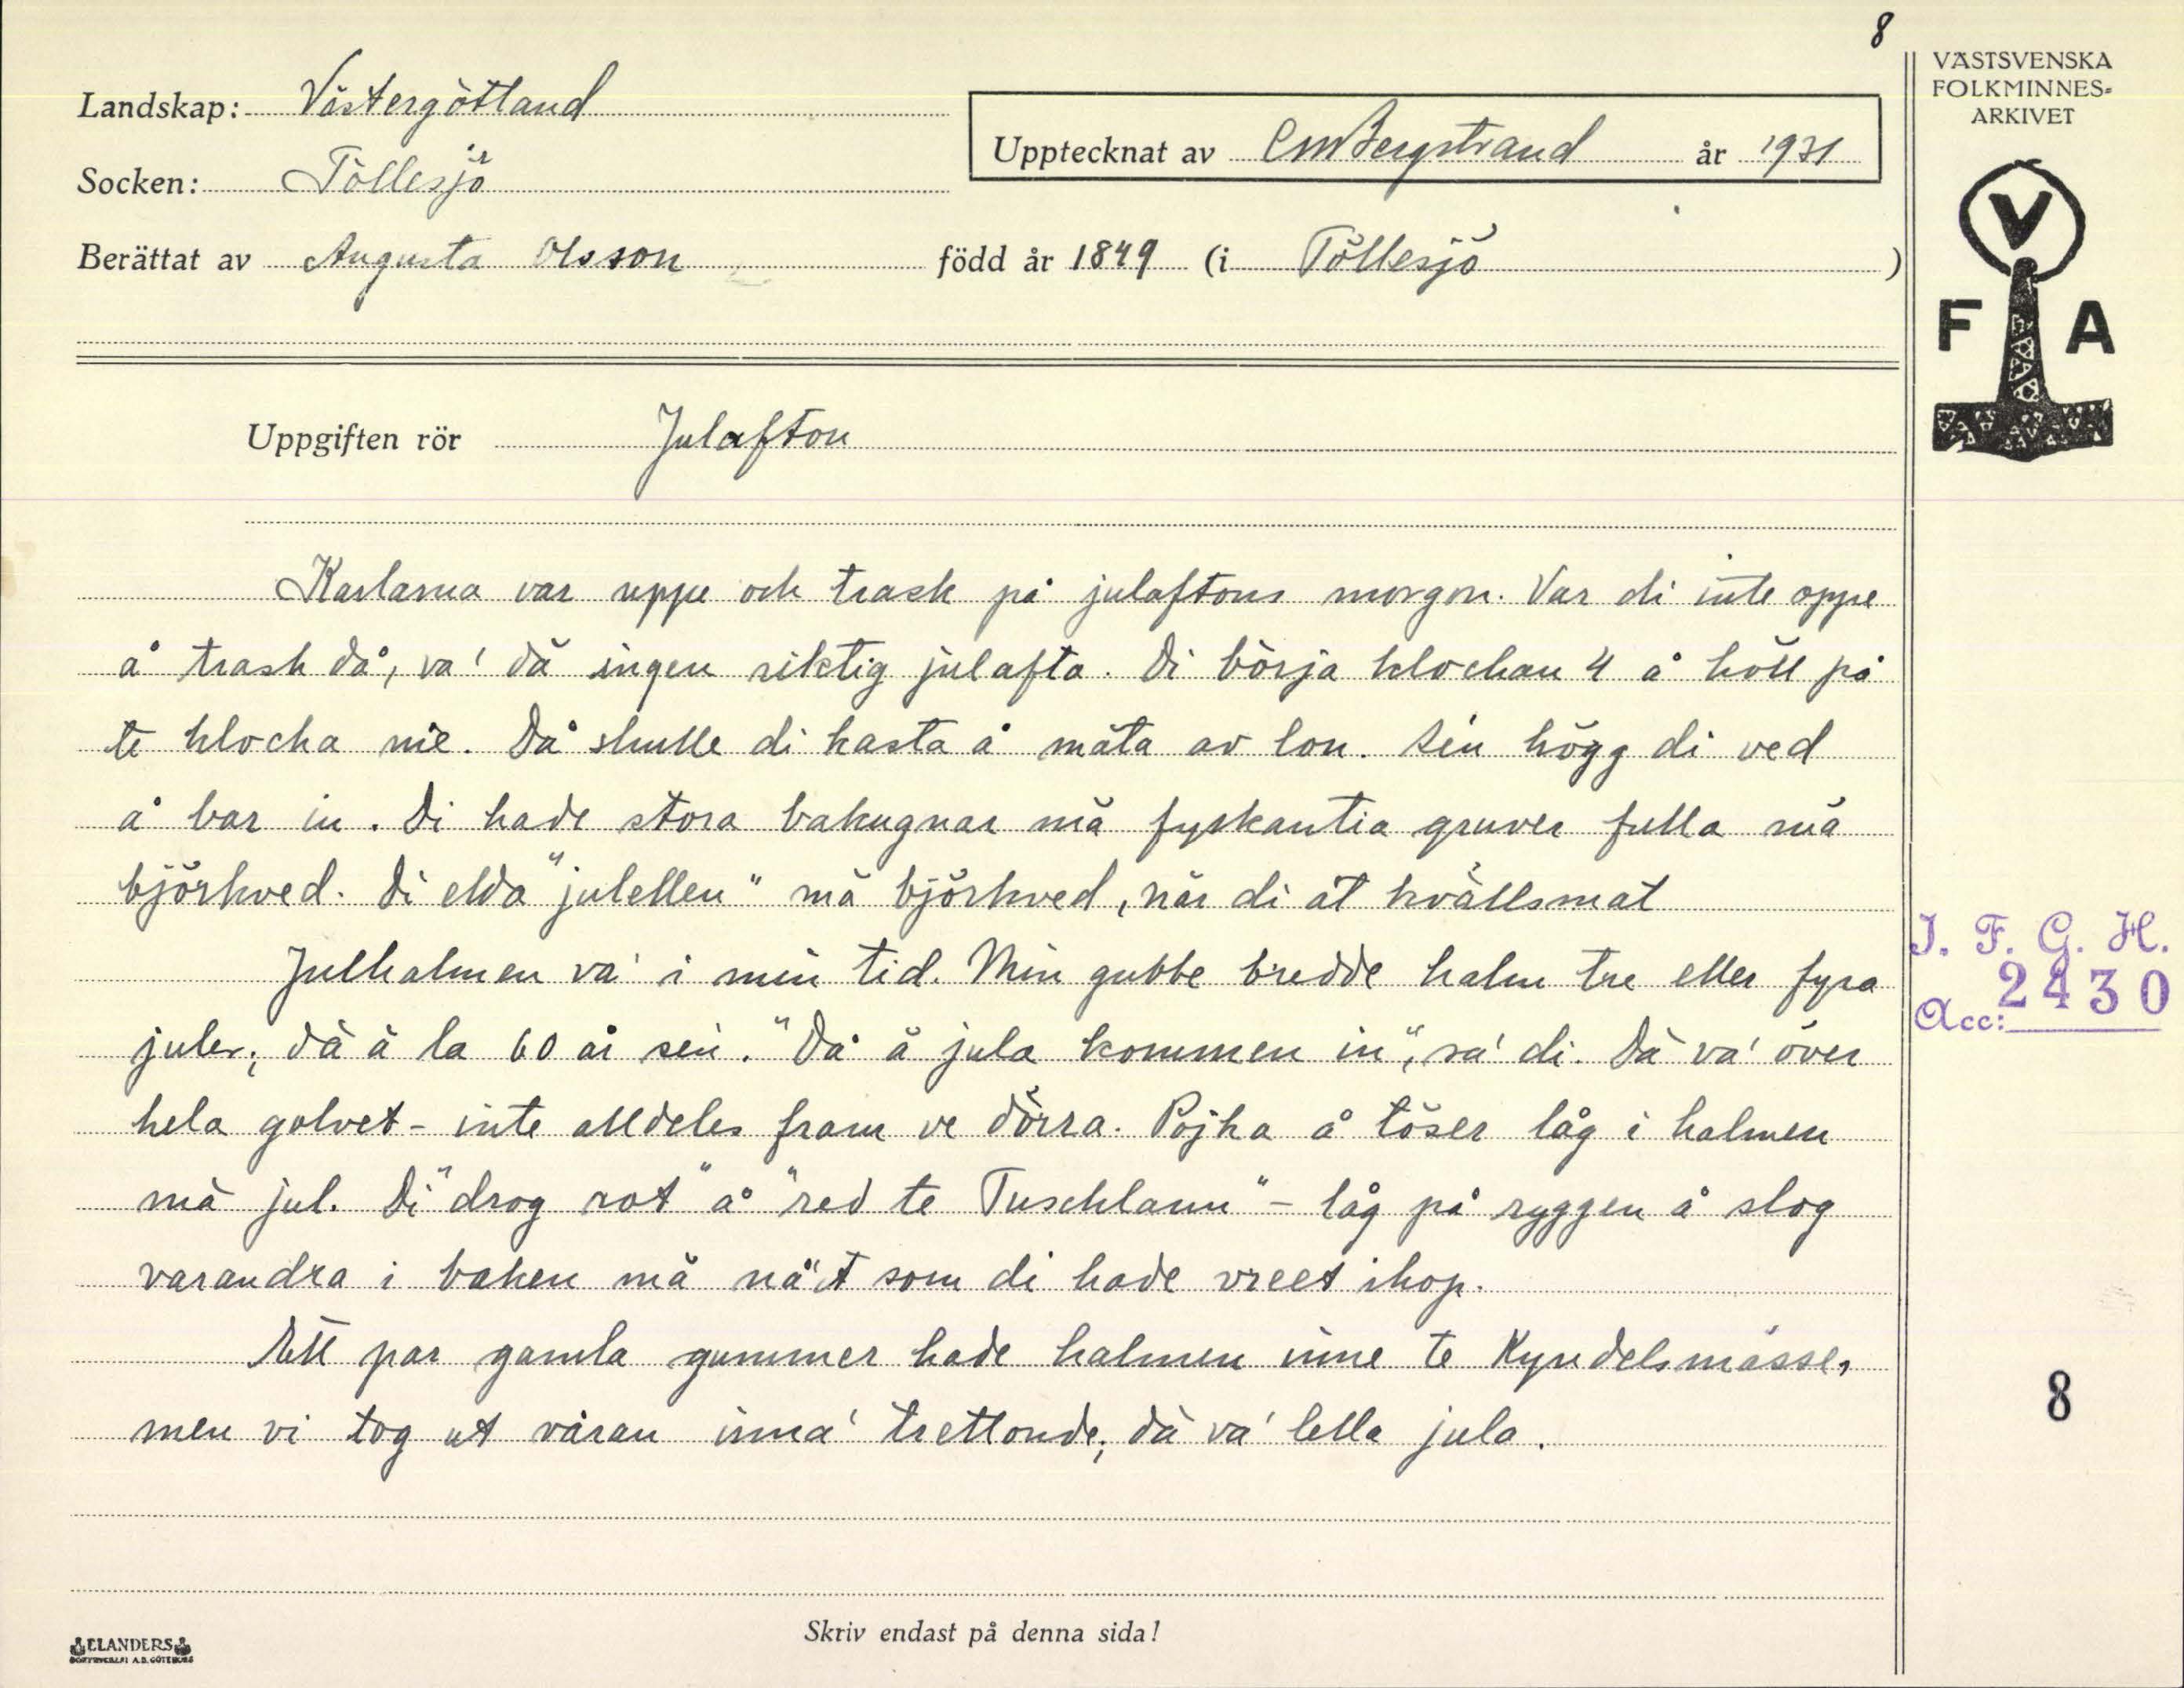 8
VÄSTSVENSKA
FOLKMINNES=
ARKIVET
Landskap: Västergötland
Upptecknat av C M Bergstrand år 1931
Socken: Töllesjö
Berättat av Augusta Olsson född år 1849 (i Töllesjö )
V
F A
Uppgiften rör Julafton
Karlarna var uppe och trask på julaftons morgon. Var di inte oppe
å trask då, va' dä ingen riktig julafta. Di börja klockan 4 å höll på
te klocka nie. Då skulle di kasta å mäta av lon. Sin högg di ved
å bar in. Di hade stora bakugnar mä fyrkantia gruver fulla mä
björkved. Di elda "julellen" mä björkved, när di åt kvällsmat
Julhalmen va' i min tid. Min gubbe bredde halm tre eller fyra
juler; dä ä la 60 år sin. "Då ä jula kommen in", sa' di. Dä va' över
hela golvet - inte alldeles fram ve dörra. Pojka å töser låg i halmen
mä jul. Di "drog rot" å "red te Tuschlann" - låg på ryggen å slog
varandra i baken mä nå't som di hade vreet ihop.
Ett par gamla gummer hade halmen inne te Kyndelsmässe,
men vi tog ut våran inna' trettonde; dä va' lella jula.
J. F. G. H.
Acc: 2430
8
Skriv endast på denna sida!
ELANDERS
BOKTRYCKERI A.B. GÖTEBORG